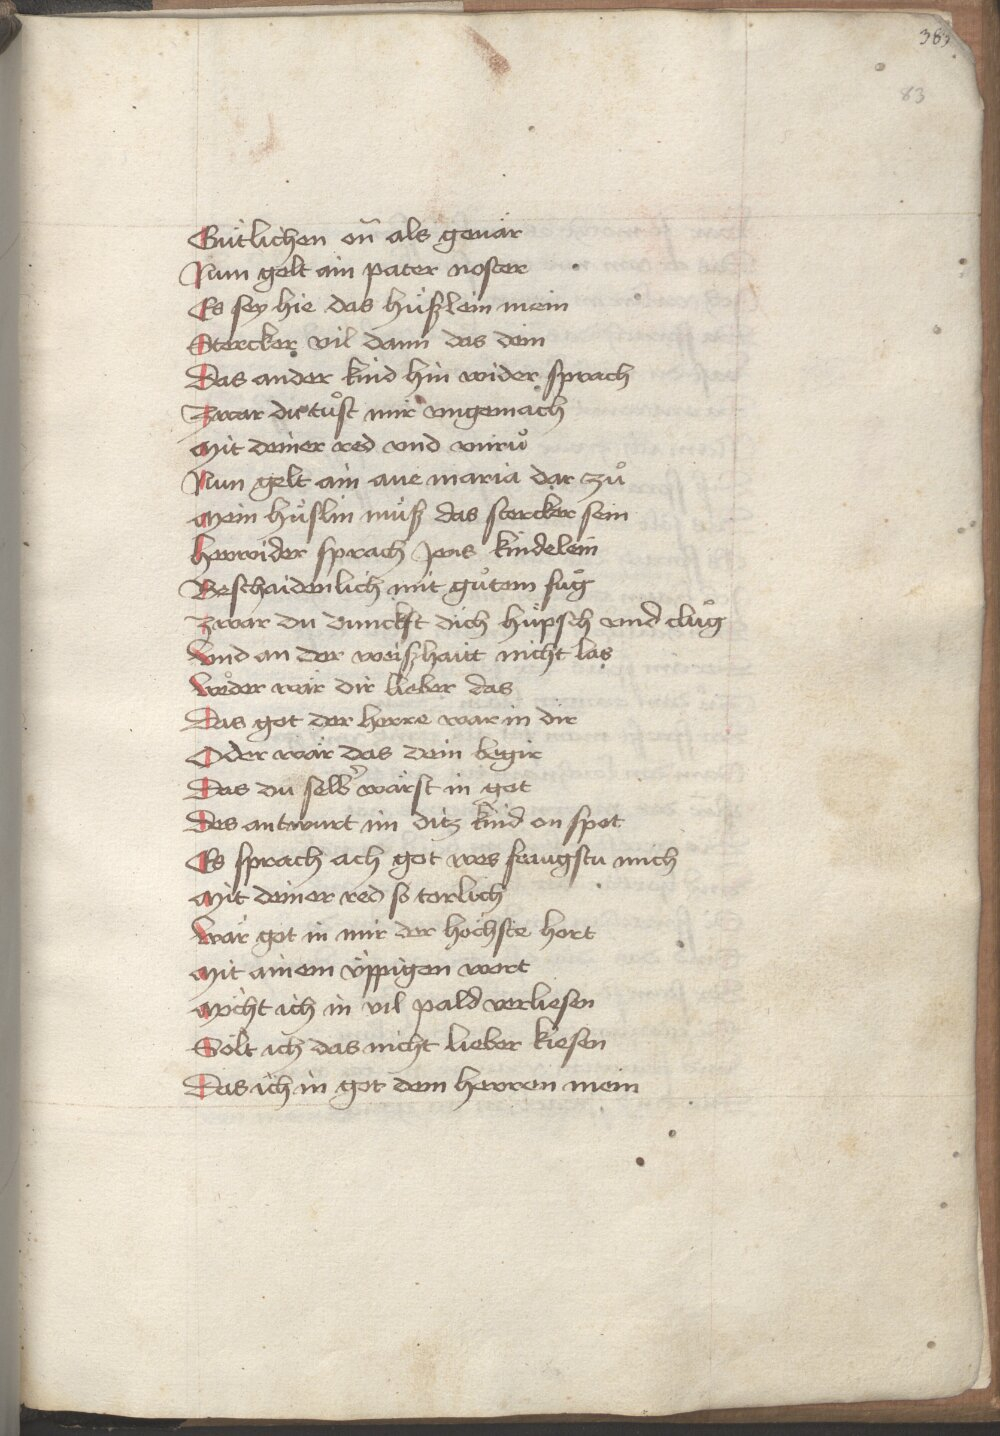 383
83
Gütlichen on̄ als geuär
Nun gelt ain pater noster
Es sey hie das hüßlein mein
Stercker vil dann das dein
Das ander kind hin wider sprach
Zwar du tuͦst mir vngemach
Mit deiner red vnd vnruͦ
Nun gelt ain aue maria dar zuͦ
Mein hüslin müß das stercker sein
Herwider sprach jens kindelein
Beschaidenlich mit guͦtem fuͦg
Zwar du dunckst dich hüpsch vnd cluͦg
Vnd an der weißhait nicht las
Weder wär dir lieber das
Das got der herre war in dir
Oder wär das dein begir
Das du selb wärst in got
Des antwurt im ditz kind on spot
Es sprach ach got wes fraugstu mich
Mit deiner red so torlich
Wär got in mir der höchste hort
Mit ainem üppigen wort
Möcht ich in vil pald verliesen
Sölt ich das nicht lieber kiesen
Das ich in got dem herren mein